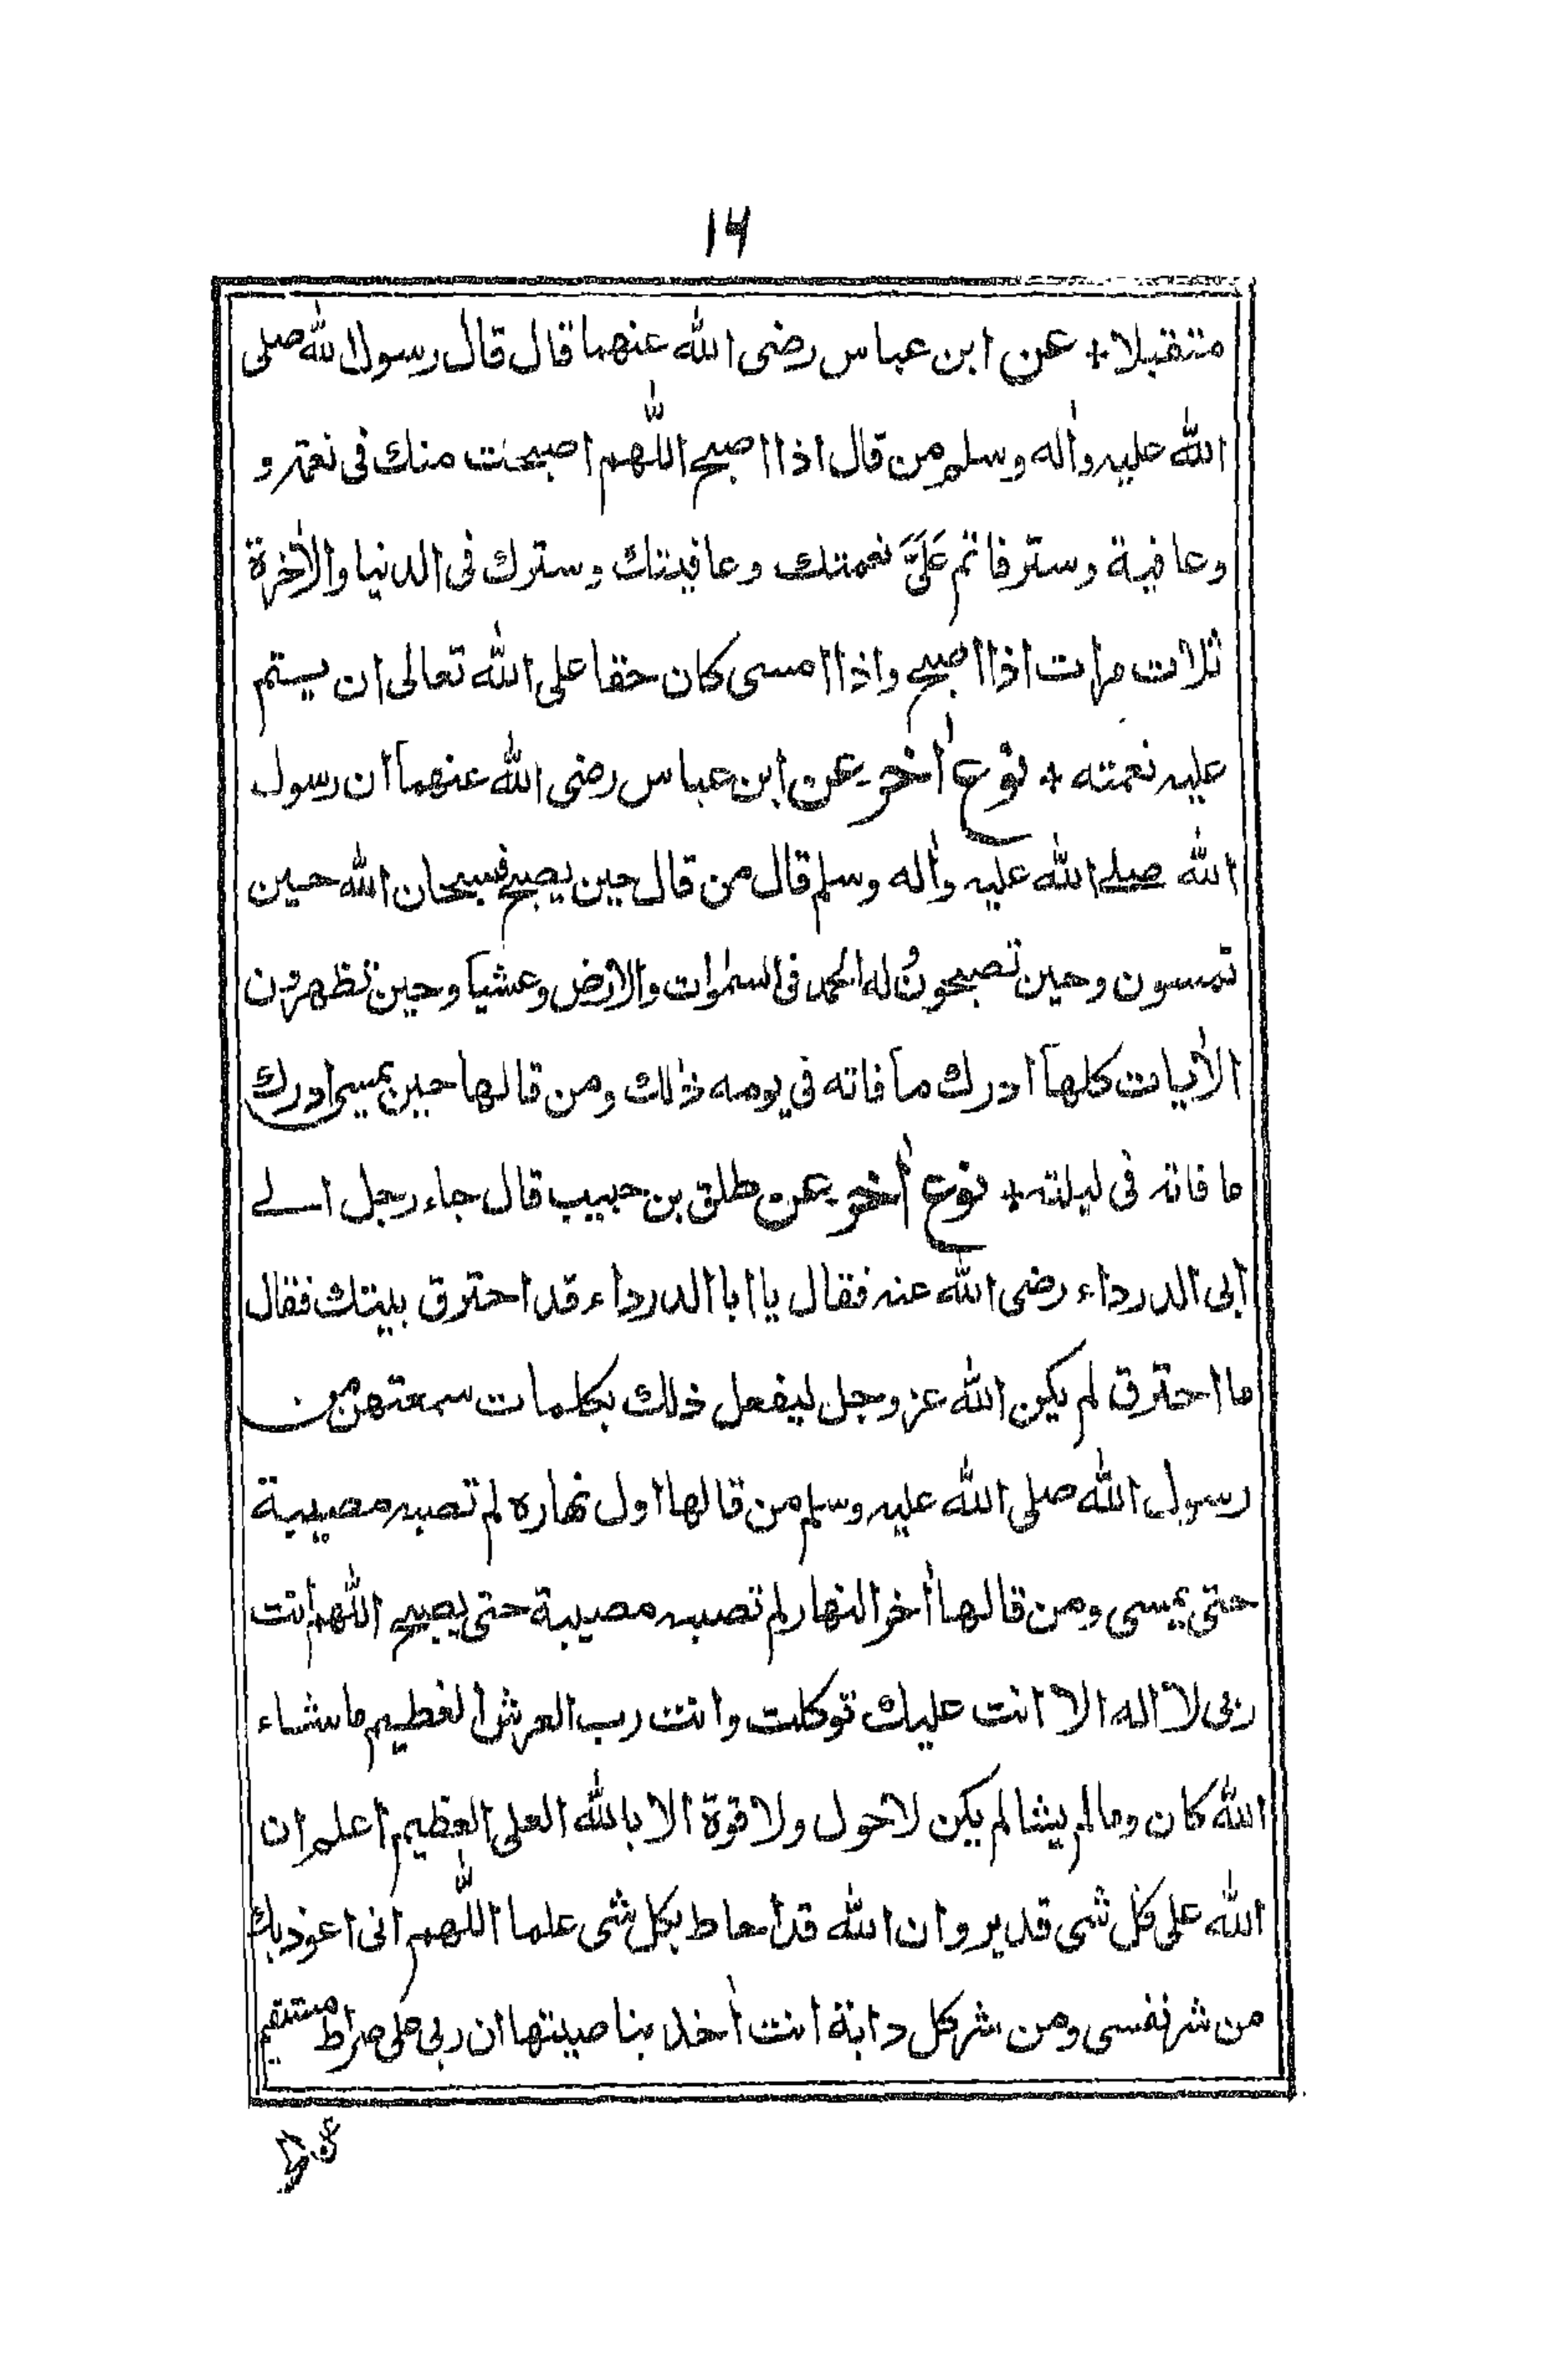 ۱۴
متقبلا * عن ابن عباس رضى الله عنهما قال قال رسول الله صلى
الله عليه واٰله وسلم من قال اذا اصبح اللّٰهم اصبحت منك فى نعمة و
وعافية وستر فاتم عَلَيَّ نعمتك وعافيتك وسترك فى الدنيا والاٰخرة
ثلاث مرات اذا اصبح واذا امسى كان حقا على الله تعالى ان يستتم
عليه نعمته * نوع اٰخر عن ابن عباس رضى الله عنهمآ ان رسول
الله صلے الله عليه واٰله وسلم قال من قال حين يصبح فسبحان الله حين
تمسون وحين تصبحونُ له الحمد فى السمٰوات والارض وعشيا وحين تظهرون
الاٰيات كلهآ ادرك مآ فاته فى يومه ذٰلك ومن قالها حين يمسى ادرك
ما فاته فى ليلته * نوع اٰخر عن طلق بن حبيب قال جاء رجل الے
ابى الدرداء رضى الله عنه فقال يا ابا الدرداء قد احترق بيتك فقال
ما احترق لم يكن الله عز وجل ليفعل ذلك بكلمات سمعتهن من
رسول الله صلى الله عليه وسلم من قالها اول نهاره لم تصبه مصيبة
حتى يمسى ومن قالها اٰخر النهار لم تصبه مصيبة حتى يصبح اللٰهم انت
ربى لآ اله الا انت عليك توكلت وانت رب العرش العظيم ما شاء
الله كان وما لم يشا لم يكن لا حول ولا قوة الا بالله العلى العظيم اعلم ان
الله على كل شى قدير وان الله قد احاط بكل شى علما اللّٰهم انى اعوذ بك
من شر نفسى ومن شر كل دابة انت اٰخذ بناصيتها ان ربى على صراط مستقيم